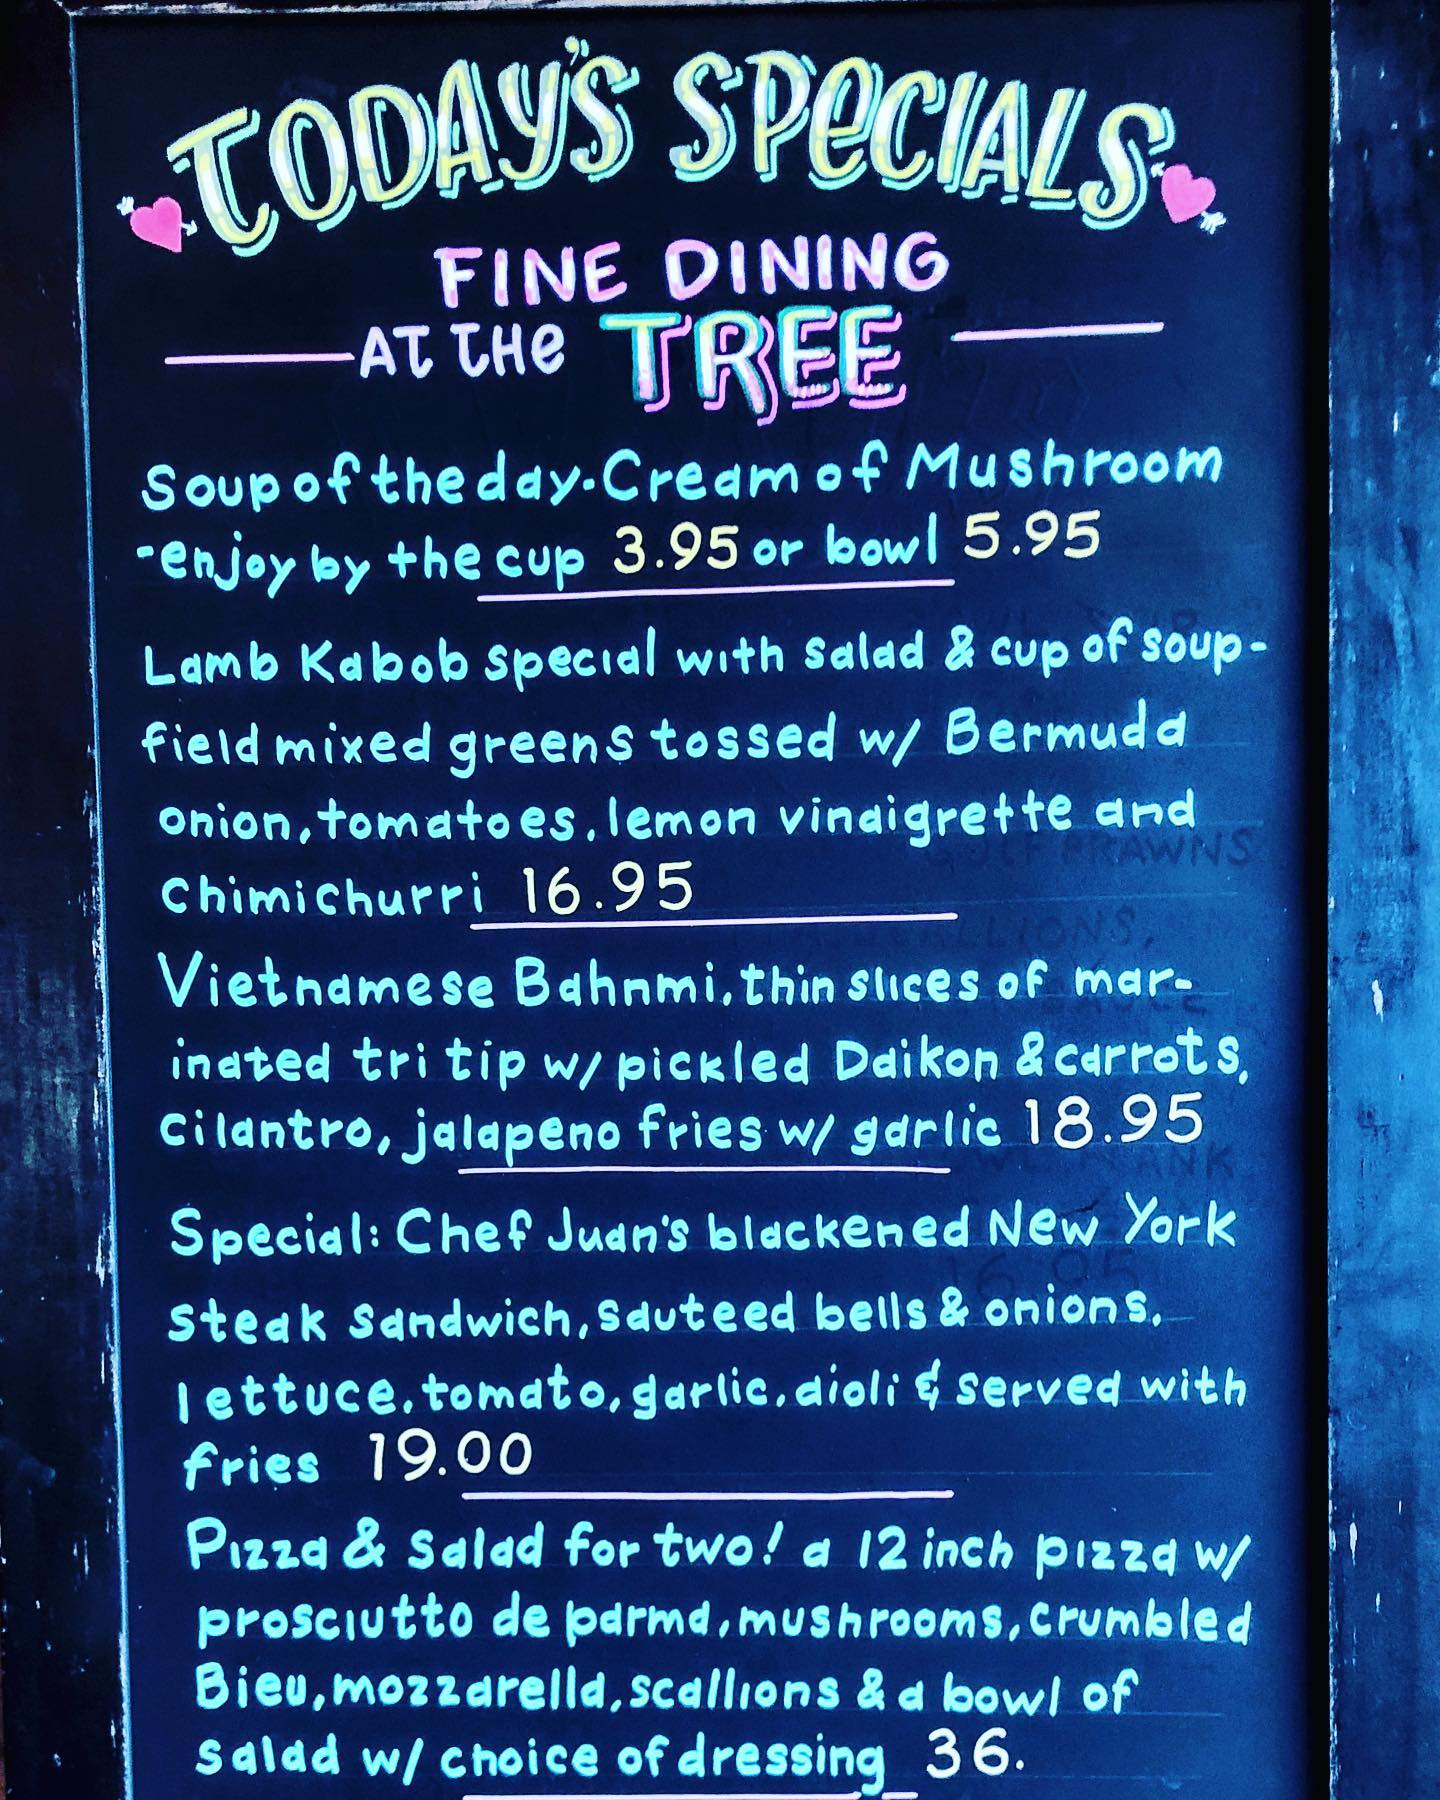 TODAY'S SPECIALS
FINE DINING
AT THE TREE
Soup of the day-Cream of Mushroom
-enjoy by the cup 3.95 or bowl 5.95
Lamb Kabob special with salad & cup of soup-
field mixed greens tossed w/ Bermuda
onion, tomatoes, lemon vinaigrette and
Chimichurri 16.95
Vietnamese Bahnmi, thin slices of mar-
inated tri tip w/ pickled Daikon & carrots,
cilantro, jalapeno fries w/ garlic 18.95
Special: Chef Juan's blackened New York
steak sandwich, sauteed bells & onions,
lettuce, tomato, garlic, aioli & served with
fries 19.00
Pizza & Salad for two! a 12 inch pizza w/
prosciutto de parma, mushrooms, crumbled
Bleu, mozzarella, scallions & a bowl of
salad w/ choice of dressing 36.